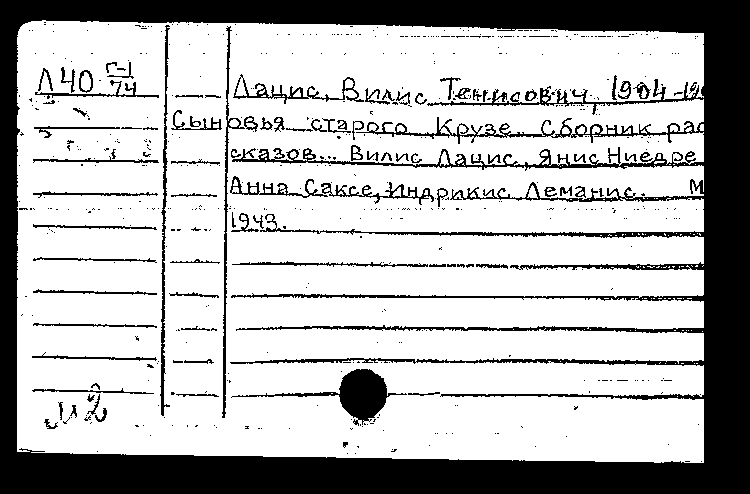 Л40 Г-1/74 Лацис, Вилис Тенисович, 1904-196
Сыновья старого Крузе. Сборник рас
сказов... Вилис Лацис, Янис Ниедре
Анна Саксе, Индрикис Леманис. М
1943.
М2